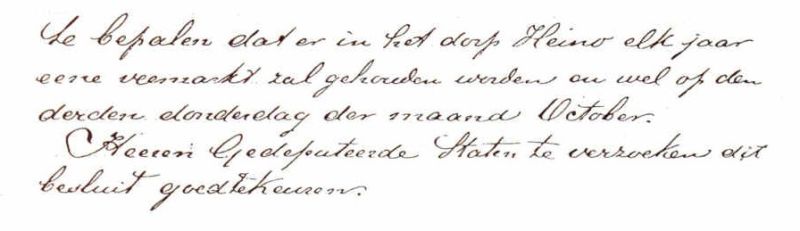 te bepalen dat er in het dorp Heino elk jaar
eene veemarkt zal gehouden worden en wel op den
derden donderdag der maand October.
Heeren Gedeputeerde Staten te verzoeken dit
besluit goedtekeuren.